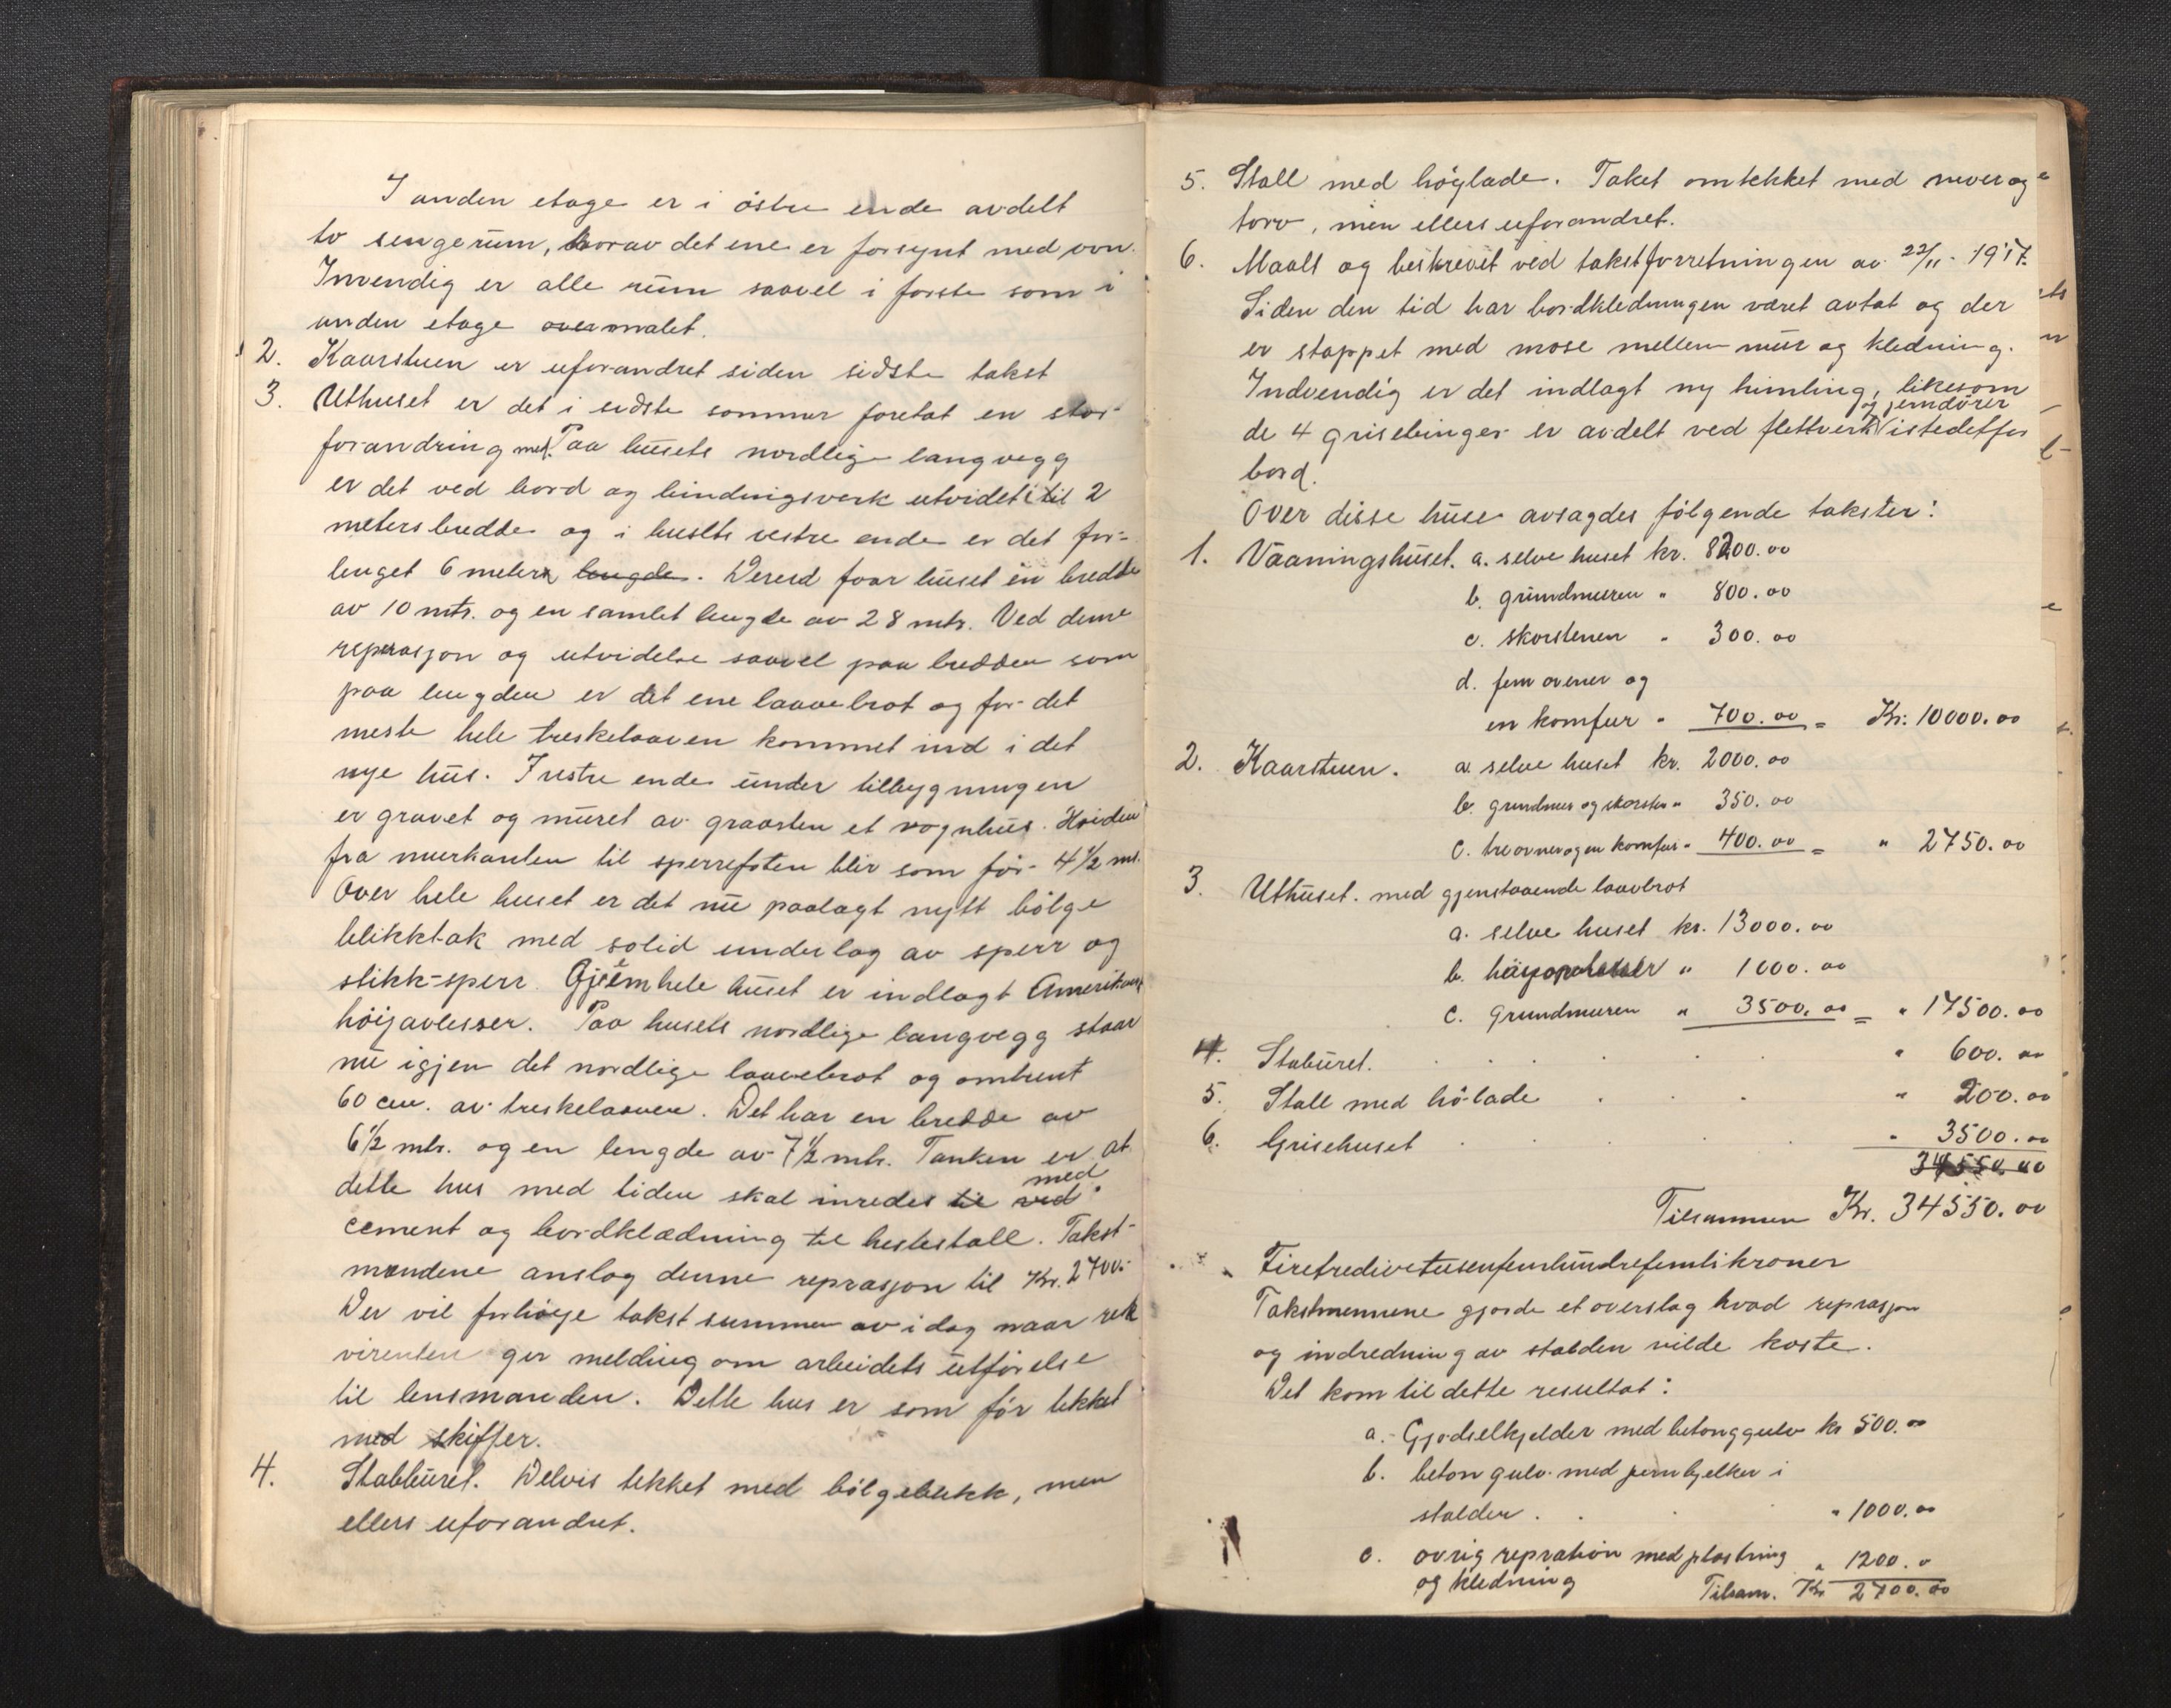 I anden etage er i östre ende avdelt
to sengerüm, hvorav det ene er forsynt med ovn.
Invendig er alle rüm saavel i förste som i
anden etage overmalet.
2. Kaarstuen er uforandret siden sidste takst
3. Uthuset er det i sidste sommer foretat en stor
forandring med. Paa hüsets nordlige langvegg
er det ved bord og bindingsverk utvidet til 2
meters bredde og i husets vestre ende er det for-
lenget 6 meter lengde. Derved faar hüset en bredde
av 10 mtr. og en samlet lengde av 28 mtr. Ved denne
reprasjon og utvidelse saavel paa bredden som
paa lengden er det ene laavebrot og for det
meste hele treskelaaven kommet ind i det
nye hüs. I vestre ende ünder tilbygningen
er gravet og müret av graasten et vognhüs. Höiden
fra murkanten til sperrefoten blir som för 4½ mt.
Over hele huset er det nü paalagt nytt bölge
blikktak med solid underlag av sperr og
stikk-sperr. Gjennem hele hüset er indlagt Amerikansk
höiavlesser. Paa husets nordlige langvegg staar
nü igjen det nordlige laavebrot og omtrent
60 cm. av treskelaaven. Det har en bredde av
6½ mtr. og en lengde av 7½ mtr. Tanken er at
dette hus med tiden skal inredes til ved med
cement og bordklædning til hestestall. Takst-
mændene anslog denne reprasjon til Kr. 2700.-
Der vil forhöie takstsummen av idag naar rek
virenten gir melding om arbeidets ütförelse
til lensmanden. Dette hus er som för tekket
med skiffer.
4. Stabbüret. Delvis tekket med bölgeblikk, men
ellers uforandret.
5. Stall med höylade. Taket omtekket med never og
torv, men ellers uforandret.
6. Maalt og beskrevet ved takstforretningen av 22/11 - 1917.
Siden den tid har bordkledningen været avtat og der
er stoppet med mose mellem mür og kledning.
Indvendig er det indlagt ny himling, likesom
de 4 grisebinger er avdelt ved flettverk og jerndörer istedetfor
bord.
Over disse hüse avsagdes fölgende takster:
1. Vaaningshüset. a. selve huset kr. 8200.00
b. gründmuren " 800.00
c. skorstenen " 300.00
d. fem ovener og
en komfur " 700.00 = Kr. 10000.00
2. Kaarstuen. a. selve huset kr. 2000.00
b. grundmur og skorsten " 350.00
c. tre ovner og en komfur " 400.00 = " 2750.00
3. Uthüset. med gjenstaaende laavbrot
a. selve huset kr. 13000.00
b. " 1000.00
c. Grundmuren " 3500.00 = " 17500.00
4. Stabüret. " 600.00
5. Stall med hö-lade " 200.00
6. Grisehuset " 3500.00
34550.00
Tilsammen Kr. 34550.00
Firetredivetusenfemhündrefemtikroner
Takstmennene gjorde et overslag hvad reprasjon
og indredning av stalden vilde koste.
Det kom til dette resultat:
a. Gjödselkjelder med betonggulv kr 500.00
b. beton gulv med jernbjelker i
stalden. " 1000.00
c. övrig repration med plastring
og kledning " 1200.0
Tilsam. Kr 2700.00